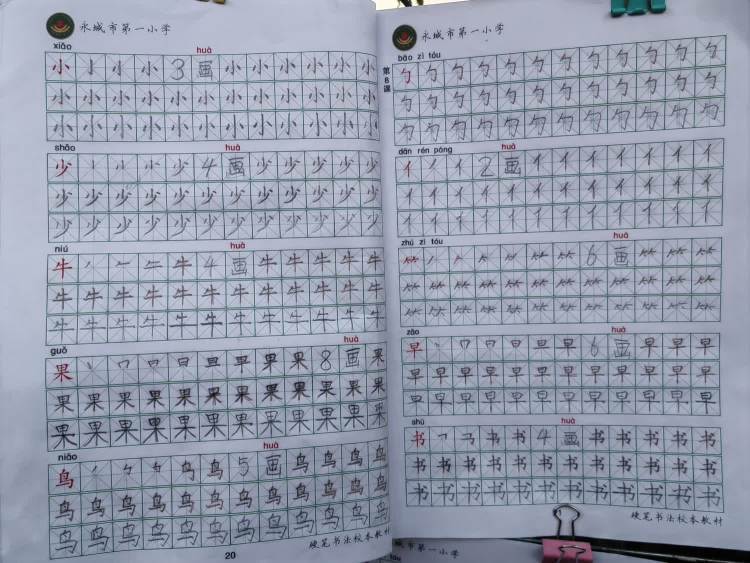 永城市第一小学
xiǎo huà
小 小 小 3 画 小 小 小 小 小 小
小 小 小 小 小 小 小 小 小 小 小 小
小 小 小 小 小 小 小 小 小 小 小 小
shǎo huà
少 小 少 4 画 少 少 少 少 少
少 少 少 少 少 少 少 少 少 少 少 少
少 少 少 少 少 少 少 少 少 少 少 少
niú huà
牛 牛 4 画 牛 牛 牛 牛 牛
牛 牛 牛 牛 牛 牛 牛 牛 牛 牛 牛 牛
牛 牛 牛 牛 牛 牛 牛 牛 牛 牛 牛 牛
guǒ huà
果 日 旦 果 果 8 画 果
果 果 果 果 果 果 果 果 果 果 果 果
果 果 果 果 果 果 果 果 果 果 果 果
niǎo huà
鸟 鸟 鸟 5 画 鸟 鸟 鸟 鸟
鸟 鸟 鸟 鸟 鸟 鸟 鸟 鸟 鸟 鸟 鸟 鸟
鸟 鸟 鸟 鸟 鸟 鸟 鸟 鸟 鸟 鸟 鸟 鸟
硬笔书法校本教材
20
永城市第一小学
第8课
bāo zì tóu
勹 勹 勹 勹 勹 勹 勹 勹 勹 勹 勹 勹
勹 勹 勹 勹 勹 勹 勹 勹 勹 勹 勹 勹
勹 勹 勹 勹 勹 勹 勹 勹 勹 勹 勹 勹
dān rén páng huà
亻 亻 2 画 亻 亻 亻 亻 亻 亻 亻
亻 亻 亻 亻 亻 亻 亻 亻 亻 亻 亻 亻
亻 亻 亻 亻 亻 亻 亻 亻 亻 亻 亻 亻
zhú zì tóu huà
𥫗 𥫗 6 画 𥫗 𥫗 𥫗
𥫗 𥫗 𥫗 𥫗 𥫗 𥫗 𥫗 𥫗 𥫗 𥫗 𥫗 𥫗
𥫗 𥫗 𥫗 𥫗 𥫗 𥫗 𥫗 𥫗 𥫗 𥫗 𥫗 𥫗
zǎo huà
早 日 旦 早 6 画 早 早 早
早 早 早 早 早 早 早 早 早 早 早 早
早 早 早 早 早 早 早 早 早 早 早 早
shū huà
书 书 书 4 画 书 书 书 书 书
书 书 书 书 书 书 书 书 书 书 书 书
书 书 书 书 书 书 书 书 书 书 书 书
硬笔书法校本教材
城市第一小学